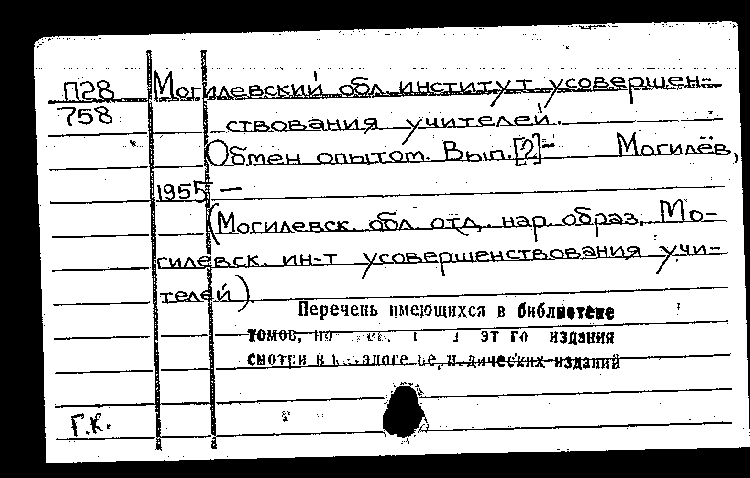 П28 Могилевский обл. институт усовершен-
758 ствования учителей.
Обмен опытом. Вып.[2]- Могилёв,
1955 —
(Могилевск. обл. отд. нар. образ. Мо-
гилевск. ин-т усовершенствования учи-
телей).
Перечень имеющихся в библиотеке
томов, эт го издания
смотри в изданий
Г.К.